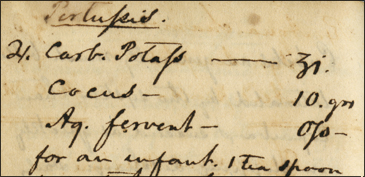 Pertussis.
℞. Carb. Potass — ʒi.
Cocus — 10. grs
Aq. fervent — O/s —
for an infant. 1 tea spoon